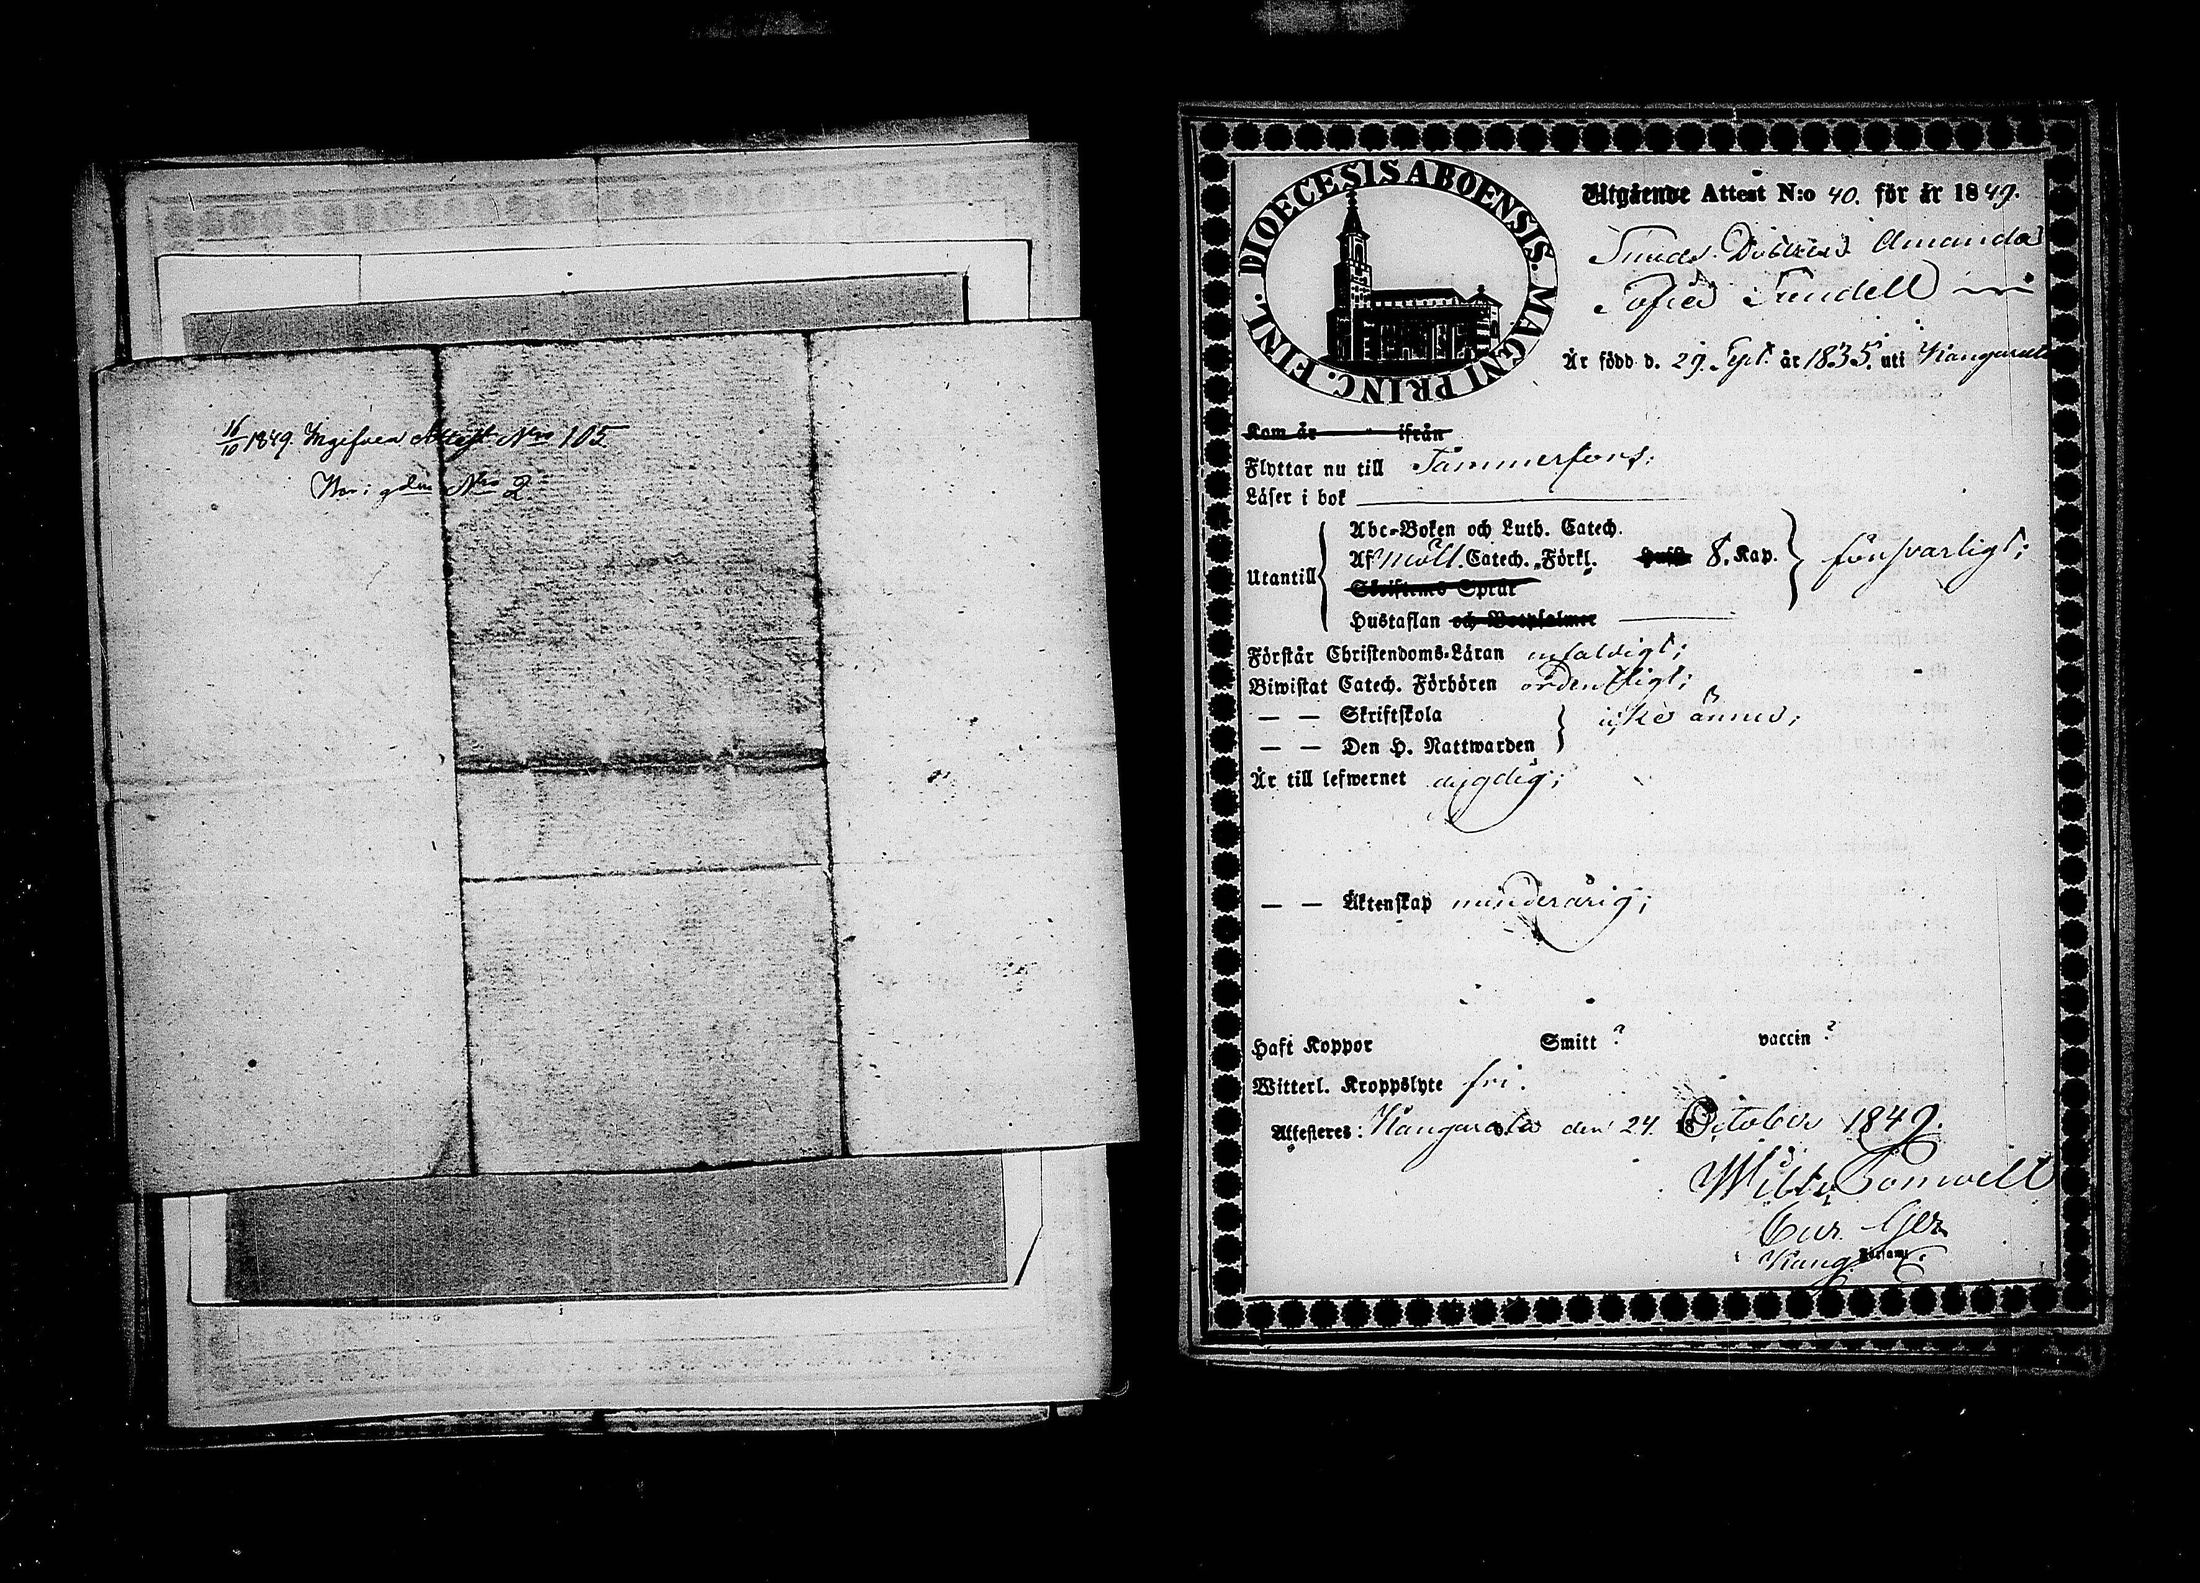 16/10 1849. Ingifven Attest Nro 105
Nro 2
DIOECESIS ABOENSIS. MAGNI PRINC. FINL.
Utgående Attest N:o 40. för år 1849.
Amanda
Sofia Sundell
Är född d. 29. Sept. år 1835. uti Kangasala
Kom år ifrån
Flyttar nu till Tammerfors:
Läser i bok
Utantill
Abc-Boken och Luth. Catech.
Af Möll. Catech. Förkl. 8. Kap. försvarligt;
Skriftenes Språk
Hustaflan och Botpsalmer
Förstår Christendoms-Läran enfaldigt;
Biwistat Catech. Förhören ordentligt;
— — Skriftskola
icke ännu;
— — Den H. Nattwarden
Är till lefwernet dygdig;
— — Äktenskap minderårig;
Haft Koppor Smitt ? vaccin ?
Witterl. Kroppslyte fri.
Attesteres: Kangasala den 24. October 1849.
Församl.